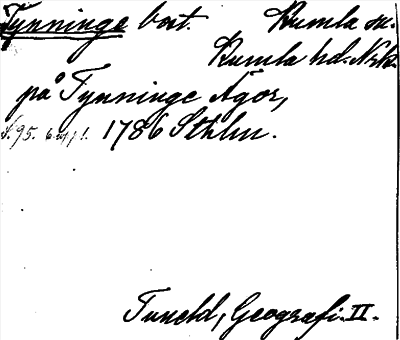 Tynninge bort. Kumla sn.
Kumla hd. Nrk.
på Tynninge Ägor,
S. 95. 1786 Sthlm.
Tuneld, Geografi. II.